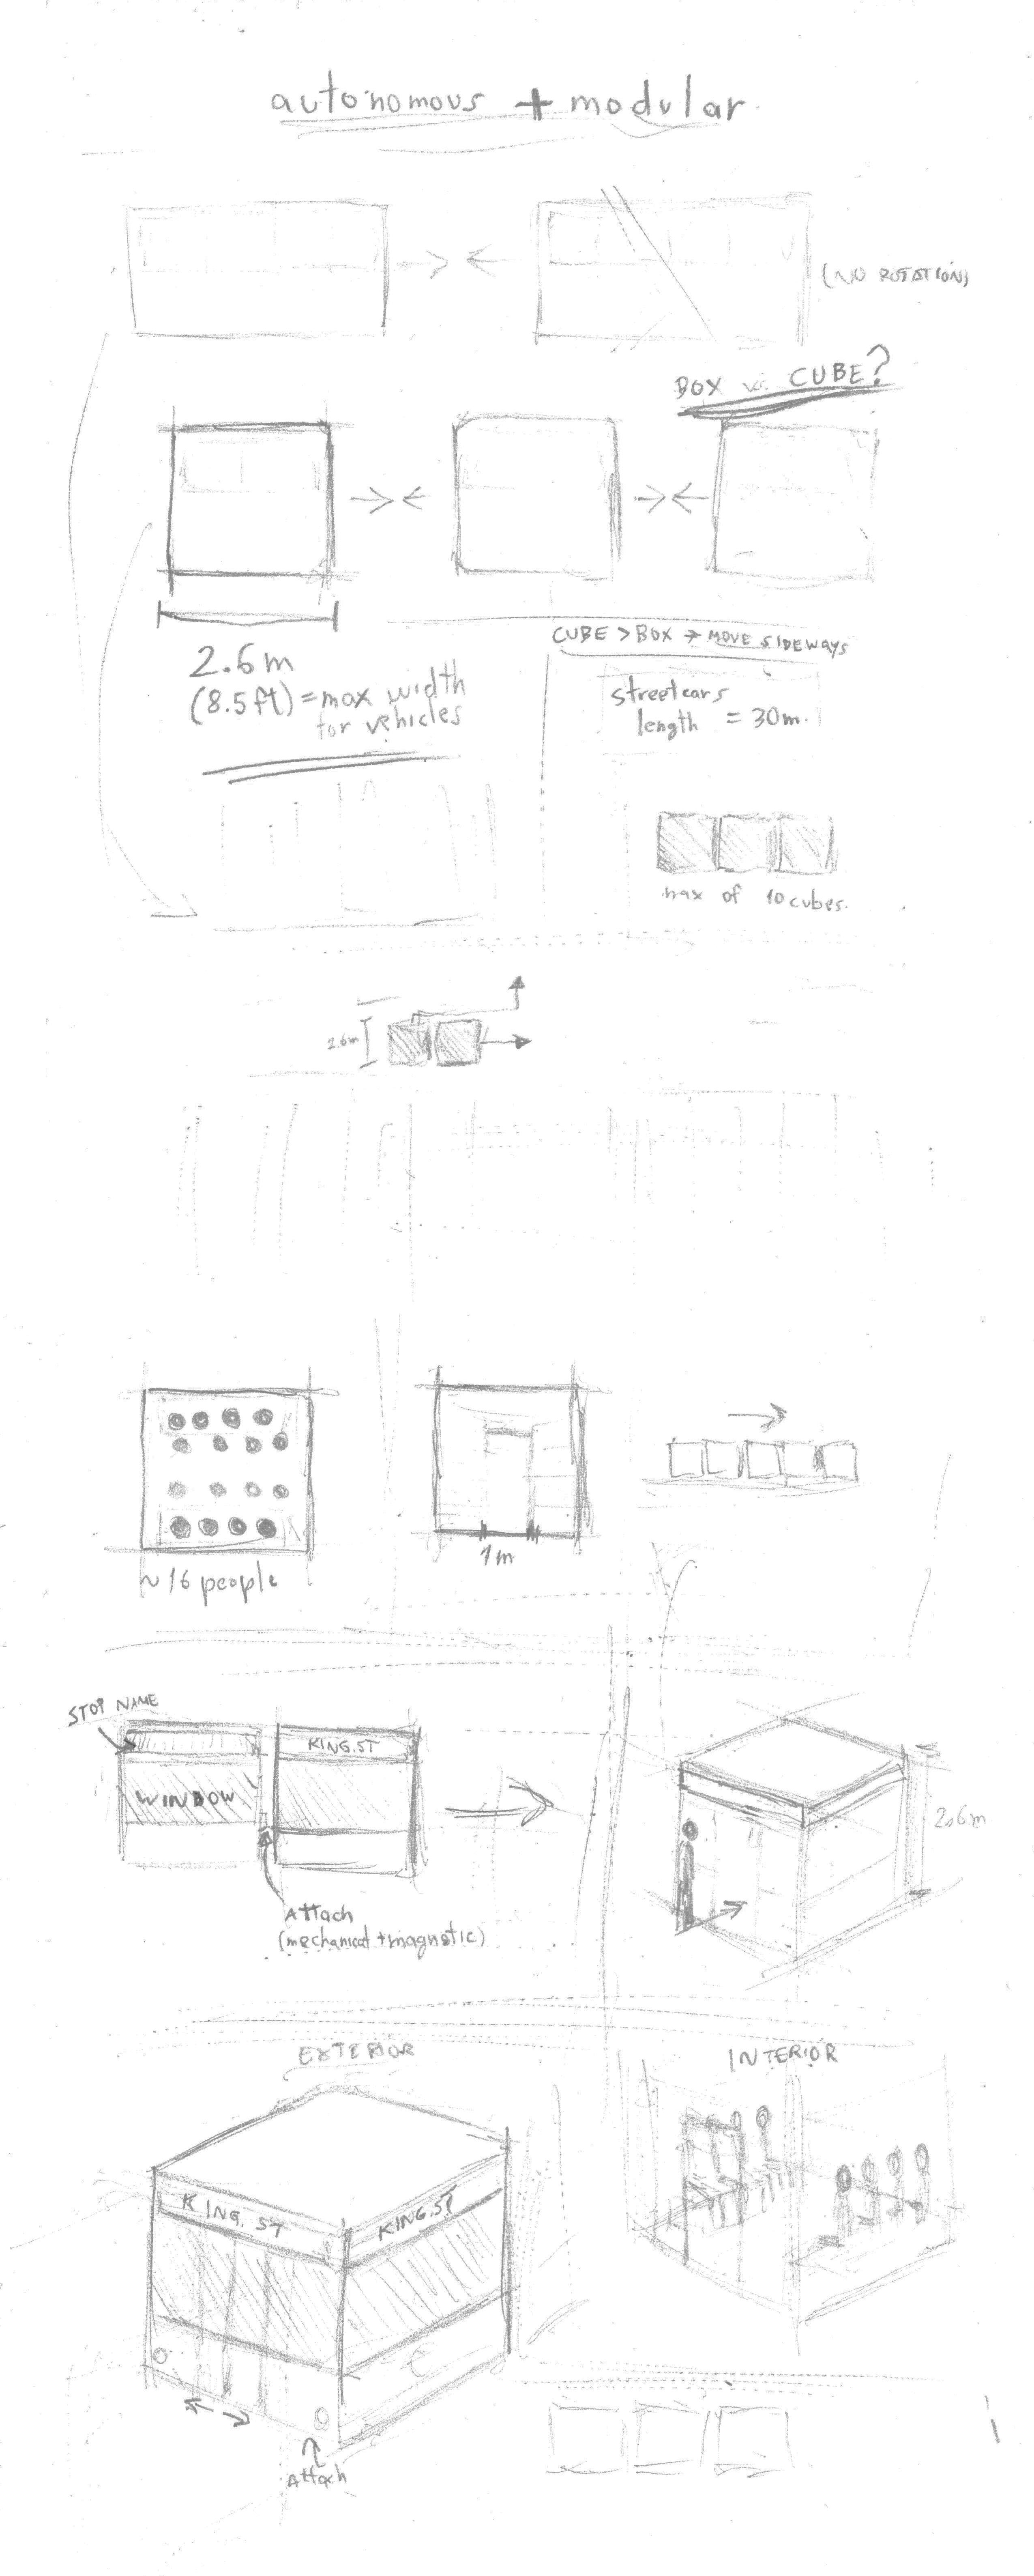 autonomous + modular
(NO ROTATION)
BOX vs. CUBE?
2.6m
(8.5ft) = max width
for vehicles
CUBE > BOX → MOVE SIDEWAYS
streetcars
length = 30m.
max of 10 cubes.
2.6m
~ 16 people
1m
STOP NAME
KING.ST
WINDOW
Attach
(mechanical + magnetic)
2.6m
EXTERIOR
INTERIOR
KING. ST
KING.ST
Attach